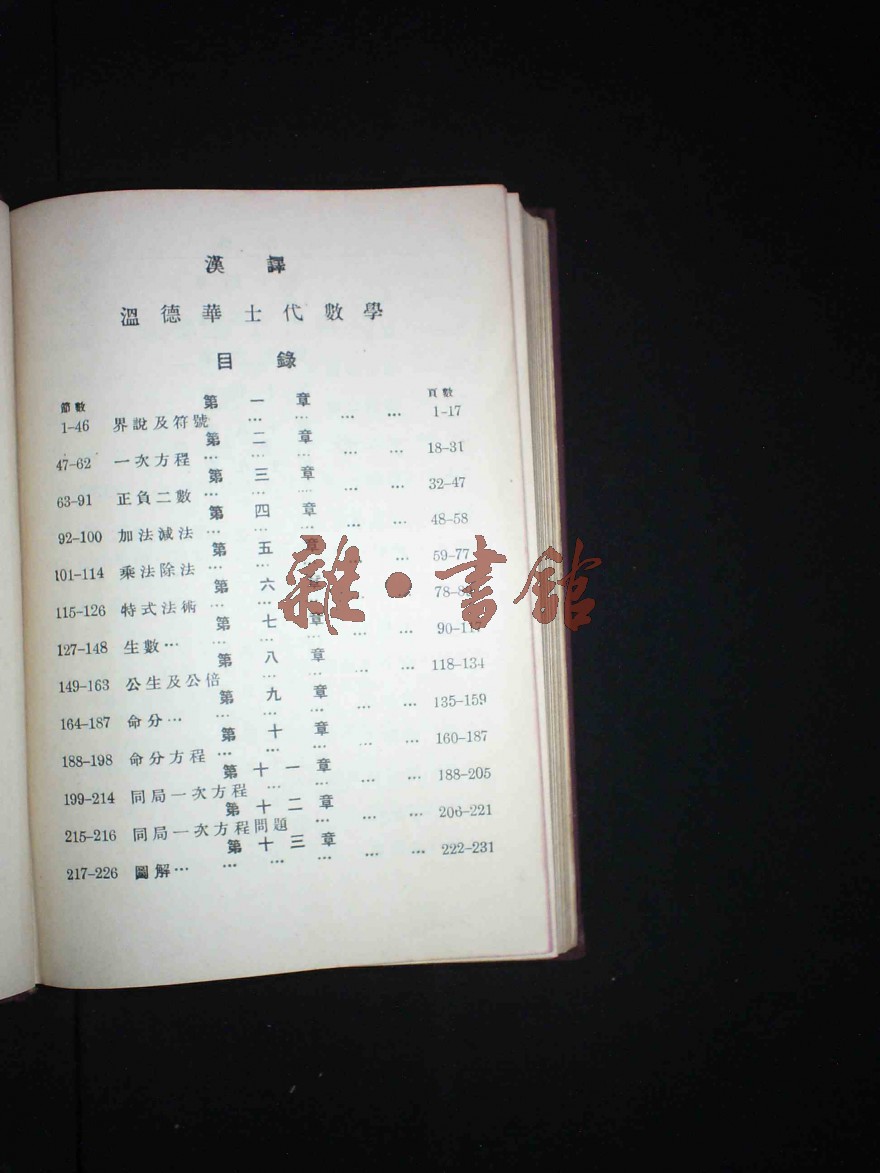 漢譯
溫德華士代數學
目錄
節數 頁數
第一章
1-46 界說及符號 … … … … 1-17
第二章
47-62 一次方程 … … … … 18-31
第三章
63-91 正負二數 … … … … 32-47
第四章
92-100 加法減法 … … … … 48-58
第五章
101-114 乘法除法 … … … … 59-77
第六章
115-126 特式法術 … … … 78-
第七章
127-148 生數 … … … … … 90-11
第八章
149-163 公生及公倍 … … … … 118-134
第九章
164-187 命分 … … … … … … 135-159
第十章
188-198 命分方程 … … … … … 160-187
第十一章
199-214 同局一次方程 … … … … 188-205
第十二章
215-216 同局一次方程問題 … … … 206-221
第十三章
217-226 圖解 … … … … … … 222-231
雜·書館